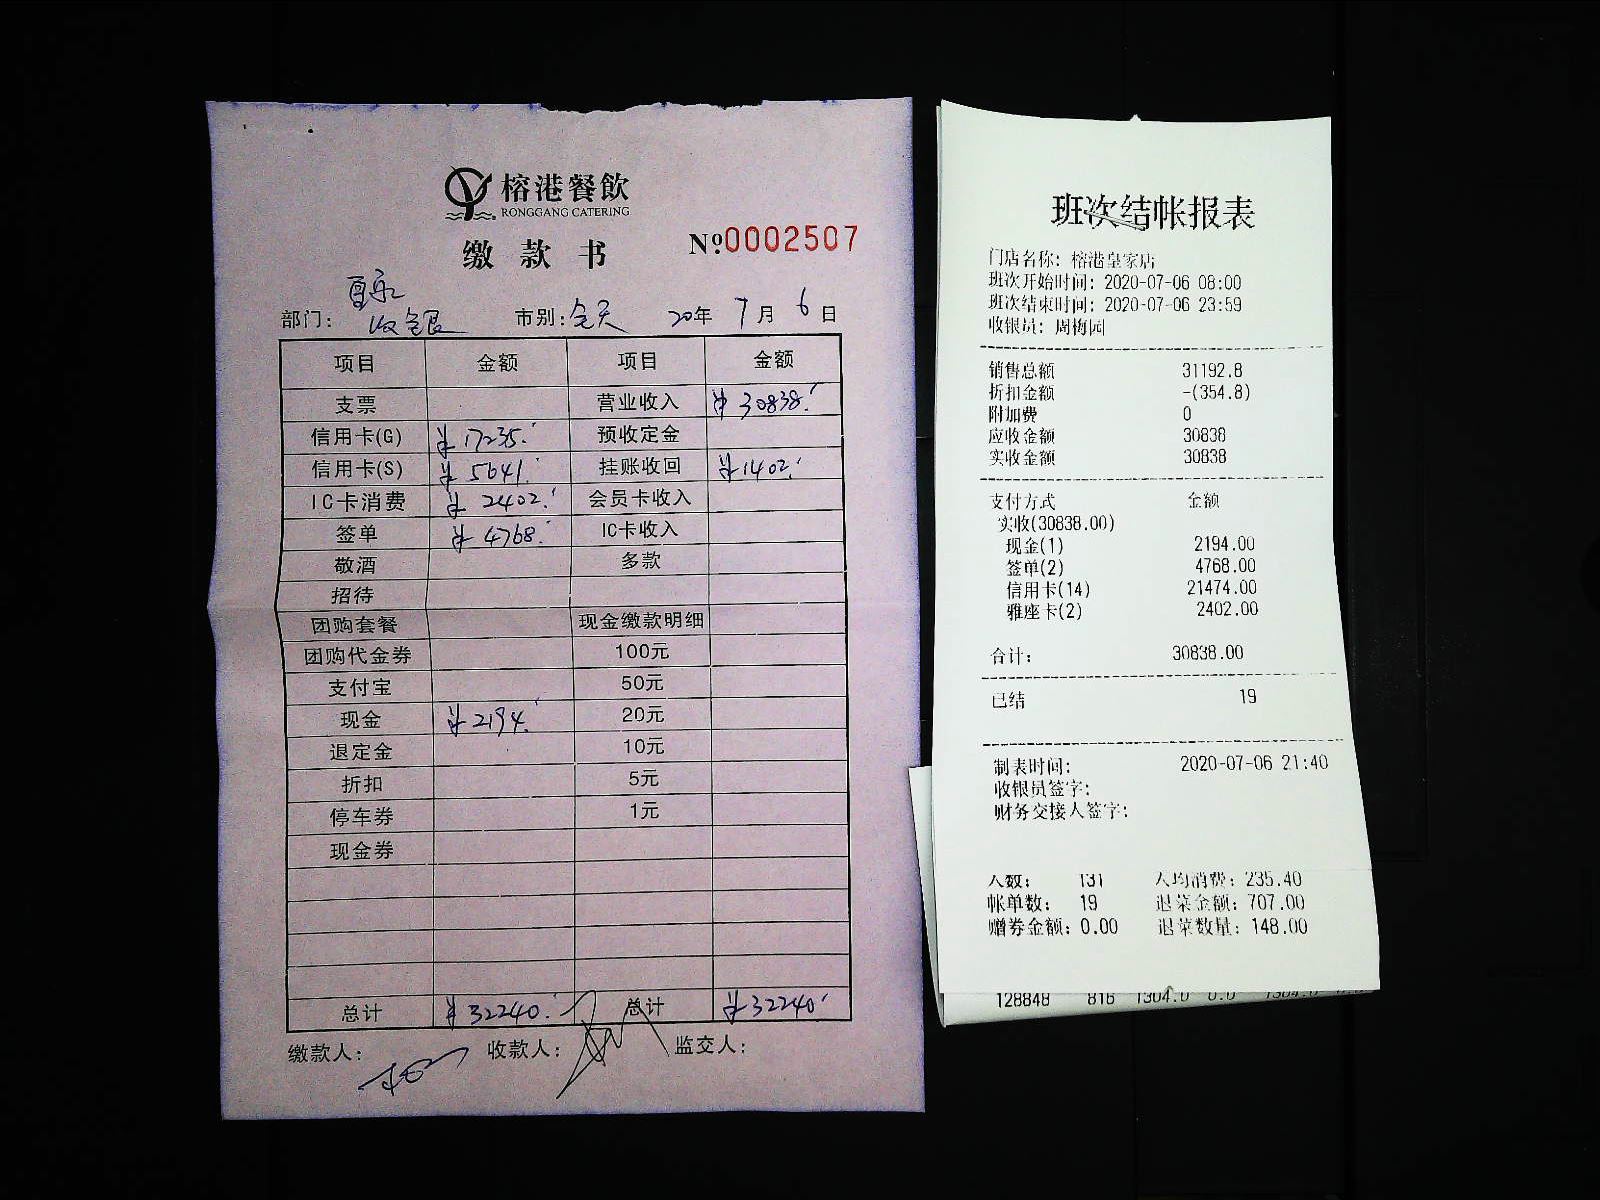 榕港餐飲
RONGGANG CATERING
缴款书 №0002507
部门: 收银 市别: 全天 20年 7月 6日
项目 金额 项目 金额
支票 营业收入 ¥30838.
信用卡(G) ¥17235. 预收定金
信用卡(S) ¥5641. 挂账收回 ¥1402.
IC卡消费 ¥2402. 会员卡收入
签单 ¥4768. IC卡收入
敬酒 多款
招待
团购套餐 现金缴款明细
团购代金券 100元
支付宝 50元
现金 ¥2194. 20元
退定金 10元
折扣 5元
停车券 1元
现金券
总计 ¥32240. 总计 ¥32240
缴款人: 收款人: 监交人:
班次结帐报表
门店名称: 榕港皇家店
班次开始时间: 2020-07-06 08:00
班次结束时间: 2020-07-06 23:59
收银员: 周梅园
销售总额 31192.8
折扣金额 -(354.8)
附加费 0
应收金额 30838
实收金额 30838
支付方式 金额
实收(30838.00)
现金(1) 2194.00
签单(2) 4768.00
信用卡(14) 21474.00
雅座卡(2) 2402.00
合计: 30838.00
已结 19
制表时间: 2020-07-06 21:40
收银员签字:
财务交接人签字:
人数: 131 人均消费: 235.40
帐单数: 19 退菜金额: 707.00
赠券金额: 0.00 退菜数量: 148.00
128848 816 1304.0 0.0 1304.0